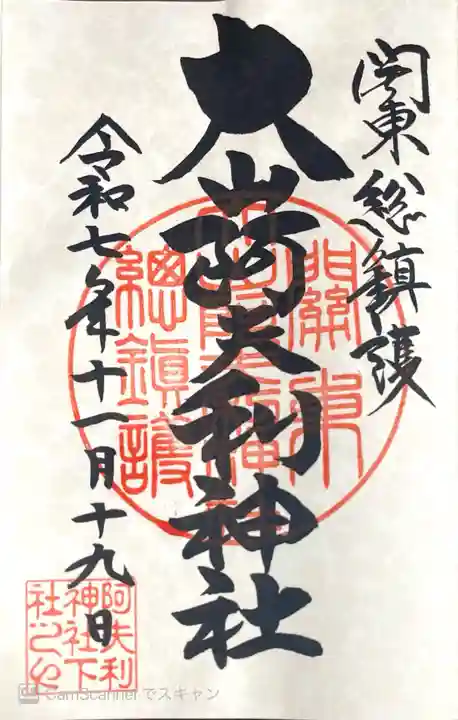 関東総鎮護
大山阿夫利神社
令和七年十一月十九日
關東
總鎮護
阿夫利
神社下
社之印
CamScannerでスキャン